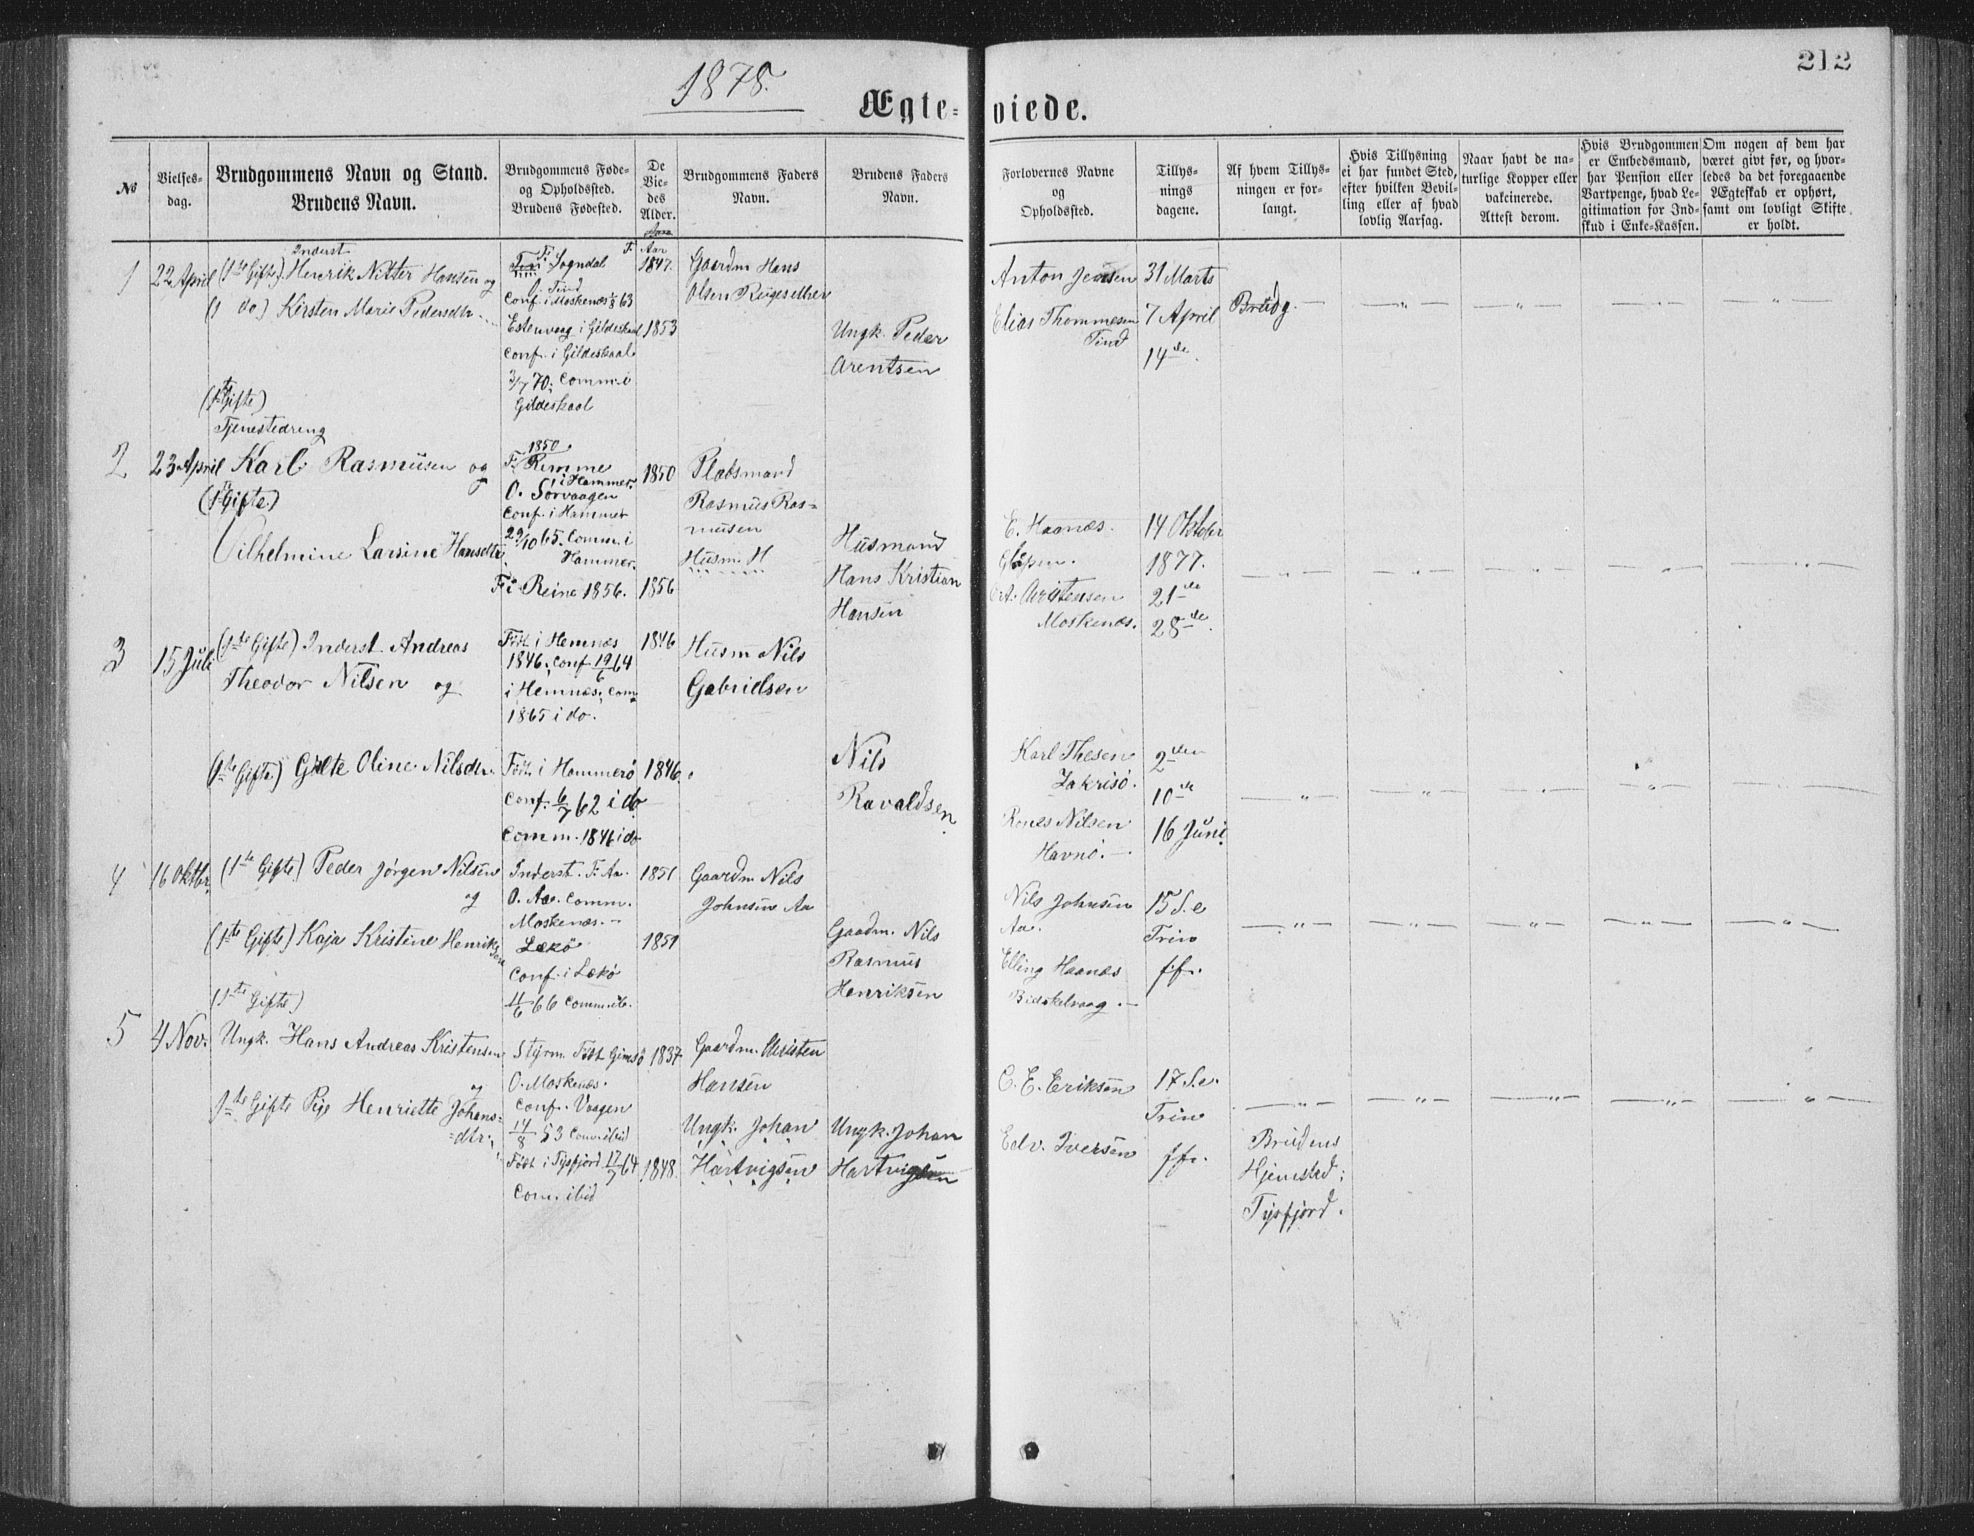 1878.
212
Ægteviede.
№
Vielses-
dag.
Brudgommens Navn og Stand.
Brudens Navn.
Brudgommens Føde-
og Opholdssted.
Brudens Fødested.
De
Vie-
des
Alder.
Brudgommens Faders
Navn.
Brudens Faders
Navn.
Forlovernes Navne
og
Opholdssted.
Tillys-
nings
dagene.
Af hvem Tillys-
ningen er for-
langt.
Hvis Tillysning
ei har fundet Sted,
efter hvilken Bevil-
ling eller af hvad
lovlig Aarsag.
Naar havt de na-
turlige Kopper eller
vakcinerede.
Attest derom.
Hvis Brudgommen
er Embedsmand,
har Pension eller
Vartpenge, hvad Le-
gitimation for Ind-
skud i Enke-Kassen.
Om nogen af dem har
været givt før, og hvor-
ledes da det foregaaende
Ægteskab er ophørt,
samt om lovligt Skifte
er holdt.
1
22 April
Inderst
(1ste Gifte) Henrik Nitter Hansen og
(1 do) Kirsten Marie Pedersdtr.
F. Sogndal
O. Tind
Conf. i Moskenæs 1/8 63
Estenvaag i Gildeskaal
Conf. i Gildeskaal
3/7 70. Comm. i
Gildeskaal
F. Aar
1847.
1853
Gaardm Hans
Olsen
Ungk. Peder
Arentsen
Anton Jensen
Elias Thommesen
Tind
31 Marts
7 April
14de
Brudg.
2
23 April
(1ste Gifte)
Tjenestedreng
Karl Rasmusen og
(1ste Gifte)
Vilhelmine Larsine Hansdtr.
1850
F. Remme
i Hammer.
O. Sørvaagen
Conf. i Hammer
29/10 65. Comm. i
Hammer.
F. i Reine 1856.
1850
1856
Pladsmand
Rasmus Ras-
musen
Husm. H
Husmand
Hans Kristian
Hansen
E. Haanæs.
Glopen.
Moskenæs.
14 Oktober
1877.
21de
28de
3
15 Juli
(1ste Gifte) Inderst Andreas
Theodor Nilsen og
(1ste Gifte) Oline Nilsdtr.
Født i Hemnæs
1846. Conf 19/6 64
i Hemnæs, Com
1865 i do.
Født i Hammerø
Conf. 6/7 62 i do
Comm. 1846 i do
1846
1846.
Husm Nils
Gabrielsen
Nils
Ravaldsen
Karl Thesen
Zakrisø.
Nilsen
Havnø.
2den
10de
16 Juni
4
16 Oktbr.
(1ste Gifte) Peder Jørgen Nilsen
og
(1ste Gifte) Kaja Kristine Henriksen
Inderst. F. Aa.
O. Aa. Comm.
Moskenæs.
Lækø
Conf. i Lækø
11/6 66
1851
1851
Gaardm Nils
Johnsen Aa
Gaadm. Nils
Rasmus
Henriksen
Nils Johnsen
Aa.
Elling Haanæs
15 S. e
Trin
ff.
5
4 Nov.
(1ste Gifte)
Ungk. Hans Andreas Kristensen
og
1ste Gifte Pige Henriette Johans-
dtr.
Styrm. Født Gimsø
O. Moskenæs.
Conf. Vaagen
14/8 53
Født i Tysfjord 17/7 64
Com. ibid
1837
1848.
Gaardm. Christen
Hansen
Ungk. Johan
Hartvigsen
Ungk. Johan
Hartvigsen
C. E. Eriksen
Edv. Iversen
17 S. e.
Trin
ff.
Brudens
Hjemsted;
Tysfjord.